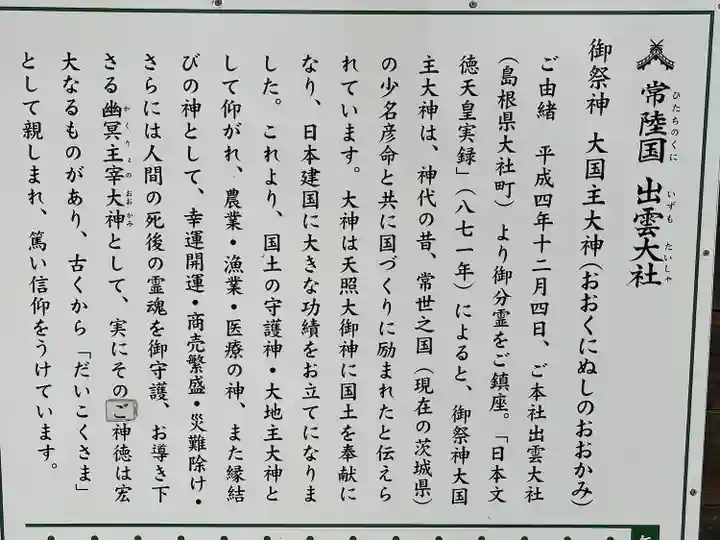 常陸国 出雲大社
ひたちのくに いずも たいしゃ
御祭神 大国主大神(おおくにぬしのおおかみ)
ご由緒 平成四年十二月四日、ご本社出雲大社
(島根県大社町)より御分霊をご鎮座。「日本文
徳天皇実録」(八七一年)によると、御祭神大国
主大神は、神代の昔、常世之国(現在の茨城県)
の少名彦命と共に国づくりに励まれたと伝えら
れています。大神は天照大御神に国土を奉献に
なり、日本建国に大きな功績をお立てになりま
した。これより、国土の守護神・大地主大神と
して仰がれ、農業・漁業・医療の神、また縁結
びの神として、幸運開運・商売繁盛・災難除け・
さらには人間の死後の霊魂を御守護、お導き下
さる幽冥主宰大神として、実にそのご神徳は宏
かくりょの おおかみ
大なるものがあり、古くから「だいこくさま」
として親しまれ、篤い信仰をうけています。